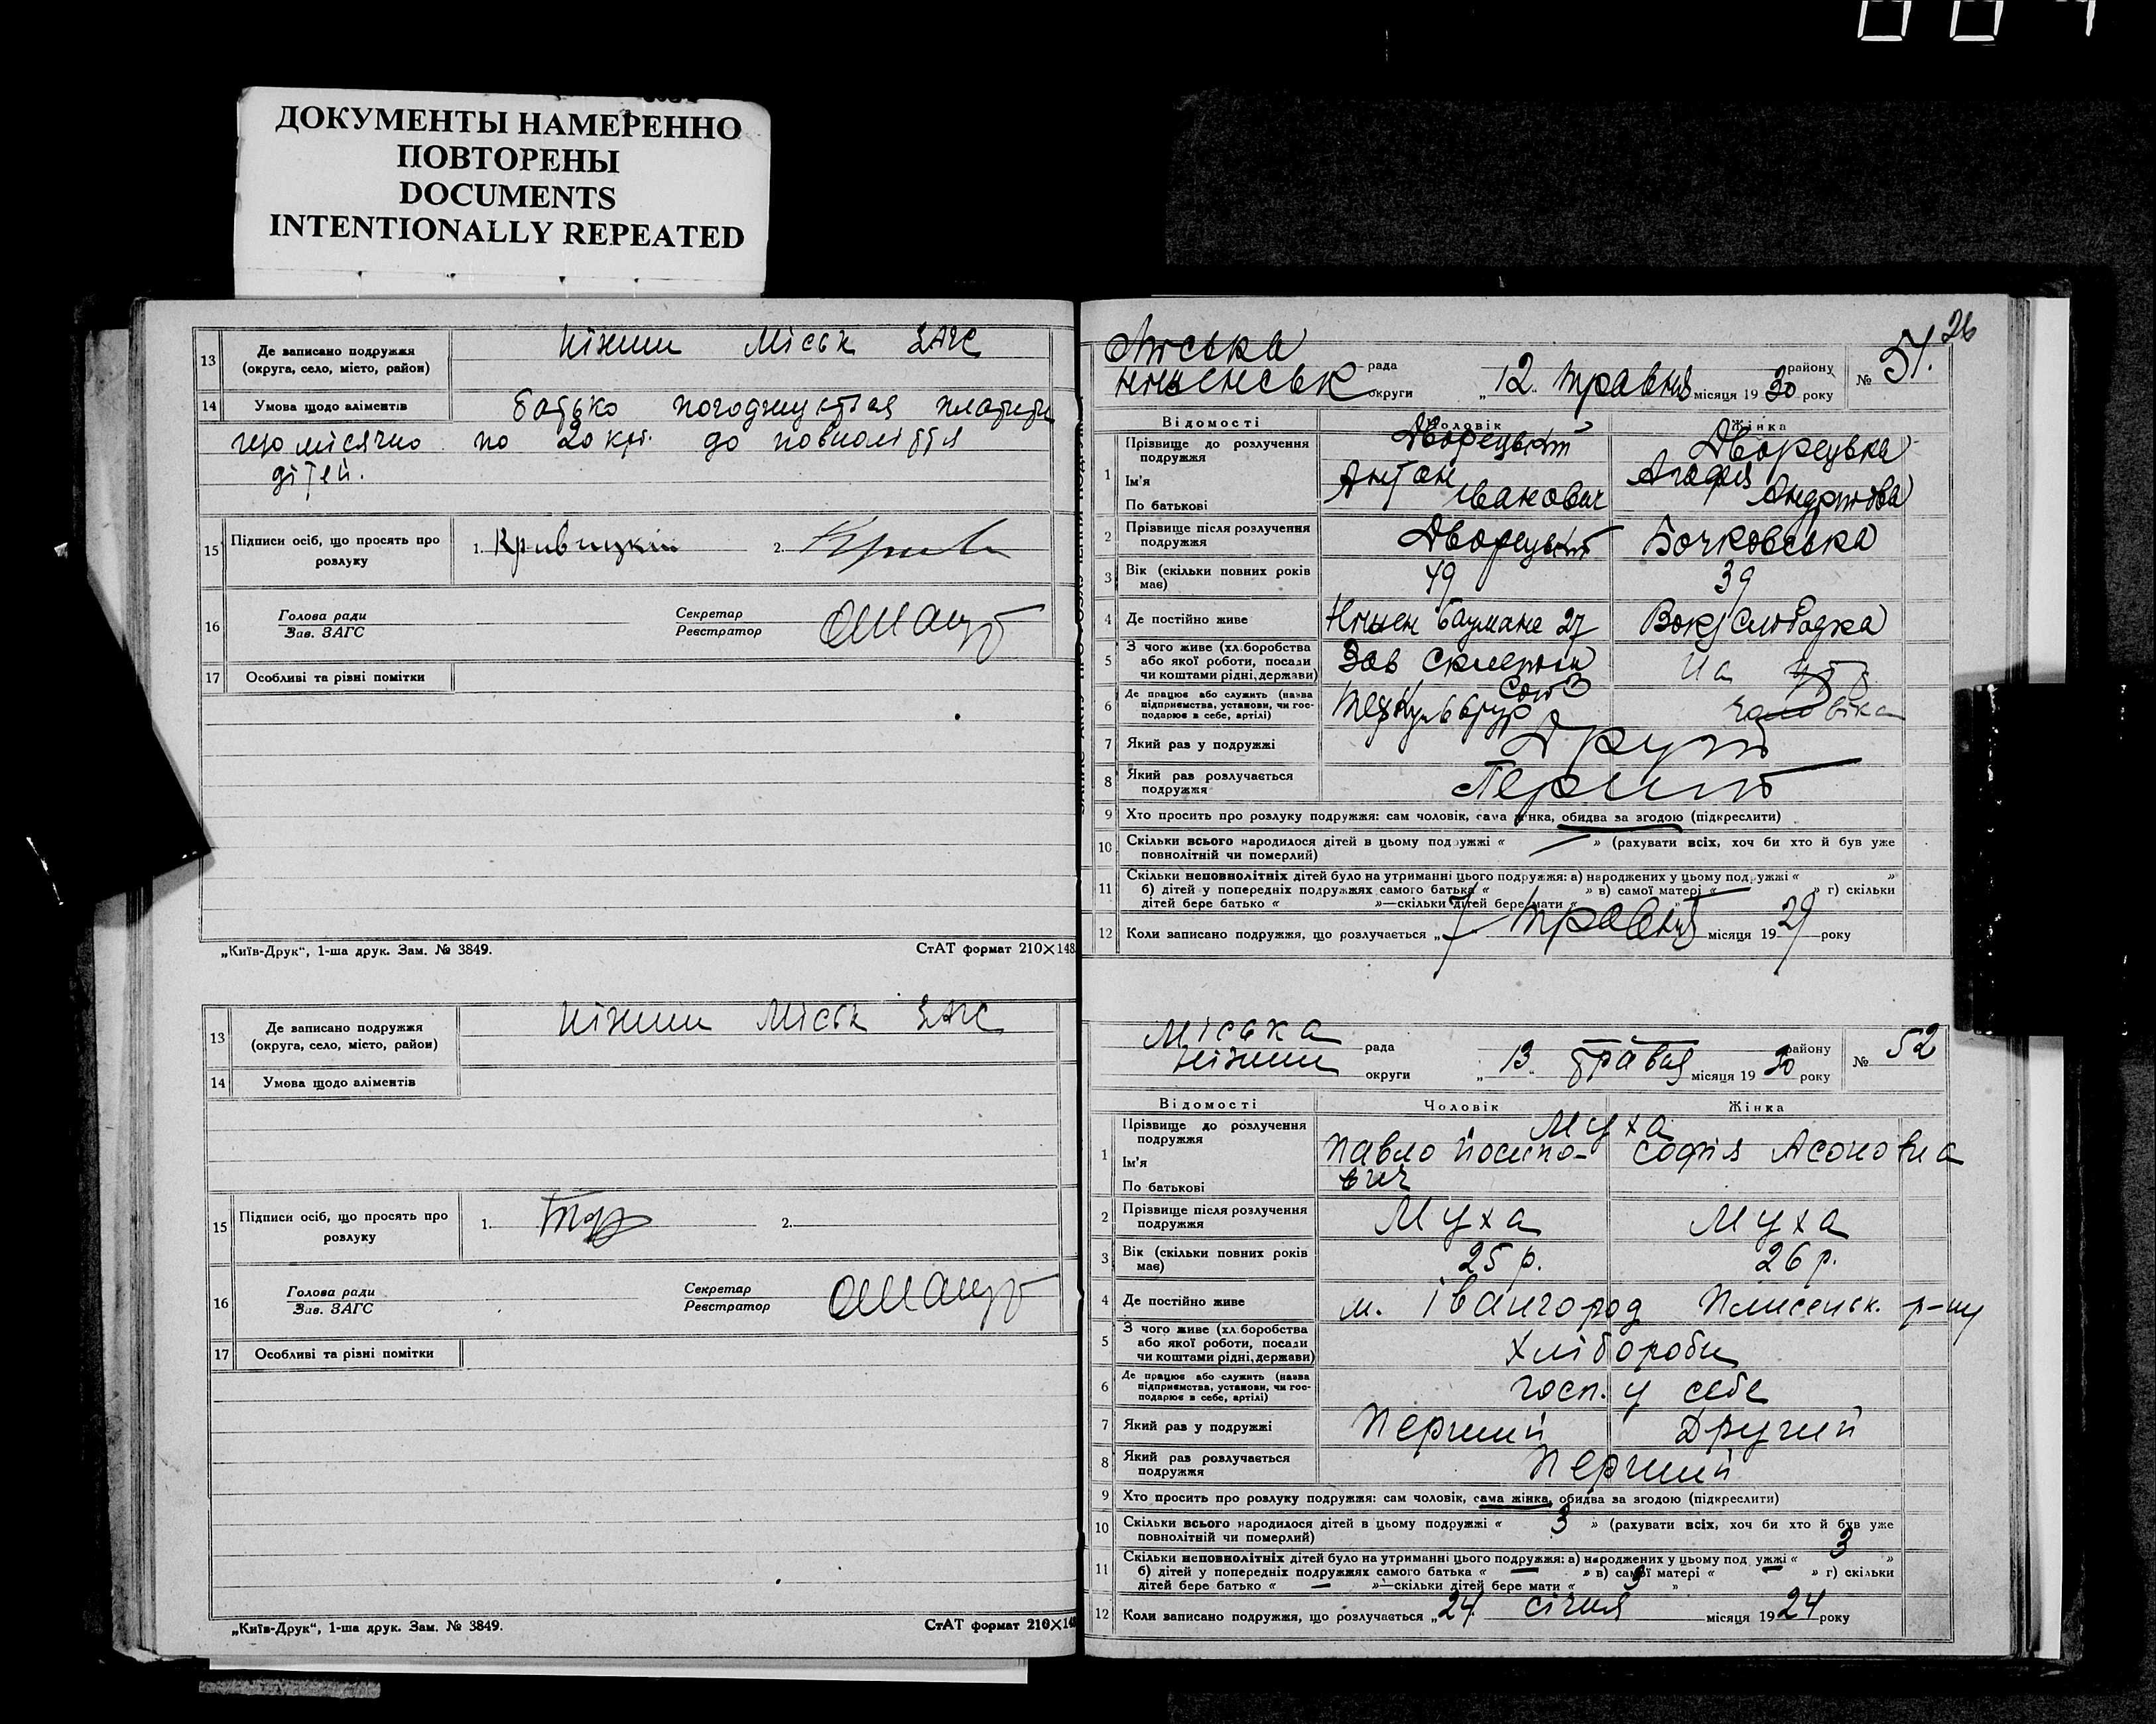 ДОКУМЕНТЫ НАМЕРЕННО
ПОВТОРЕНЫ
DOCUMENTS
INTENTIONALLY REPEATED
13 Де записано подружжя
(округа, село, місто, район)
Ніжин Міськ ЗАГС
14 Умова щодо аліментів
батько погоджується платити
що місячно по 20 крб. до повноліття
дітей.
15 Підписи осіб, що просять про
розлуку
1. 2.
16 Голова ради
Зав. ЗАГС
Секретар
Реєстратор
17 Особливі та різні помітки
„Київ-Друк“, 1-ша друк. Зам. № 3849. СтАТ формат 210×148
13 Де записано подружжя
(округа, село, місто, район)
Ніжин Міськ ЗАГС
14 Умова щодо аліментів
15 Підписи осіб, що просять про
розлуку
1. 2.
16 Голова ради
Зав. ЗАГС
Секретар
Реєстратор
17 Особливі та різні помітки
„Київ-Друк“, 1-ша друк. Зам. № 3849. СтАТ формат 210×148
26
Міська рада району
округи „12 травня місяця 1930 року № 51.
Відомості Чоловік Жінка
1 Прізвище до розлучення
подружжя
Дворецький Дворецька
Ім'я Антон Агафія
По батькові Іванович
2 Прізвище після розлучення
подружжя
Дворецький Бочковська
3 Вік (скільки повних років
має)
49 39
4 Де постійно живе
Баумана 27 Вокз Слободка
5 З чого живе (хліборобства
або якої роботи, посади
чи коштами рідні, держави)
Зав На
6 Де працює або служить (назва
підприємства, установи, чи гос-
подарює в себе, артілі)
7 Який раз у подружжі
Другий
8 Який раз розлучається
подружжя
Перший
9 Хто просить про розлуку подружжя: сам чоловік, сама жінка, обидва за згодою (підкреслити)
10 Скільки всього народилося дітей в цьому подружжі « — » (рахувати всіх, хоч би хто й був уже
повнолітній чи померлий)
11 Скільки неповнолітніх дітей було на утриманні цього подружжя: а) народжених у цьому подружжі « »
б) дітей у попередніх подружжях самого батька « » в) самої матері « — » г) скільки
дітей бере батько « »—скільки дітей бере мати « »
12 Коли записано подружжя, що розлучається „7 травня місяця 1929 року
Міська рада району
Ніжин округи „13 травня місяця 1930 року № 52
Відомості Чоловік Жінка
1 Прізвище до розлучення
подружжя
Муха
Ім'я Павло Йосипо- Софія
По батькові вич
2 Прізвище після розлучення
подружжя
Муха Муха
3 Вік (скільки повних років
має)
25 р. 26 р.
4 Де постійно живе
м. Івангород р-ну
5 З чого живе (хліборобства
або якої роботи, посади
чи коштами рідні, держави)
Хлібороби
6 Де працює або служить (назва
підприємства, установи, чи гос-
подарює в себе, артілі)
госп. у себе
7 Який раз у подружжі
Перший Другий
8 Який раз розлучається
подружжя
Перший
9 Хто просить про розлуку подружжя: сам чоловік, сама жінка, обидва за згодою (підкреслити)
10 Скільки всього народилося дітей в цьому подружжі « 3 » (рахувати всіх, хоч би хто й був уже
повнолітній чи померлий)
11 Скільки неповнолітніх дітей було на утриманні цього подружжя: а) народжених у цьому подружжі « 3 »
б) дітей у попередніх подружжях самого батька « — » в) самої матері « — » г) скільки
дітей бере батько « — »—скільки дітей бере мати « 3 »
12 Коли записано подружжя, що розлучається „24 січня місяця 1924 року